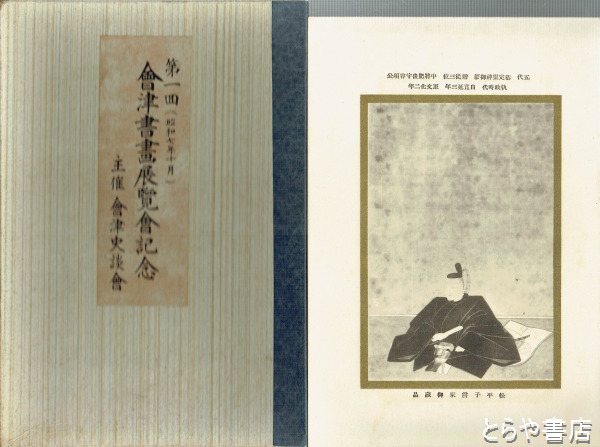 第一回(昭和七年十月)
會津書畫展覽會記念
主催 會津史談會
五代 恭定靈神御影 贈從三位 中將肥後守容頌公
執政時代 自寬延三年 至文化二年
松平子爵家御藏品
とらや書店